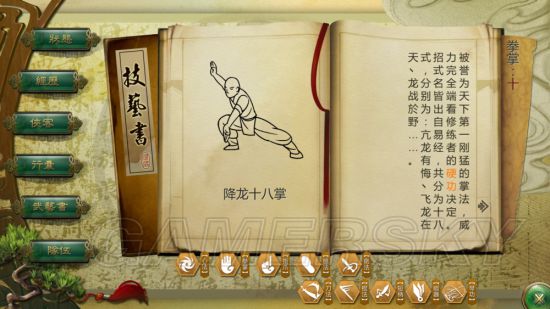 狀態
經歷
俠客
行囊
武藝書
隊伍
技藝書
降龙十八掌
拳掌：十
被誉为天下第一刚猛的掌法，威
力完全端看修练者的硬功决定。
招式名皆出自易经，共分为十八
式，分别为：亢龙有悔、飞龙在
天、龙战於野……。
GAMERSKY